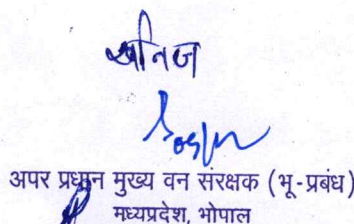 खनिज
अपर प्रधान मुख्य वन संरक्षक (भू-प्रबंध)
मध्यप्रदेश, भोपाल